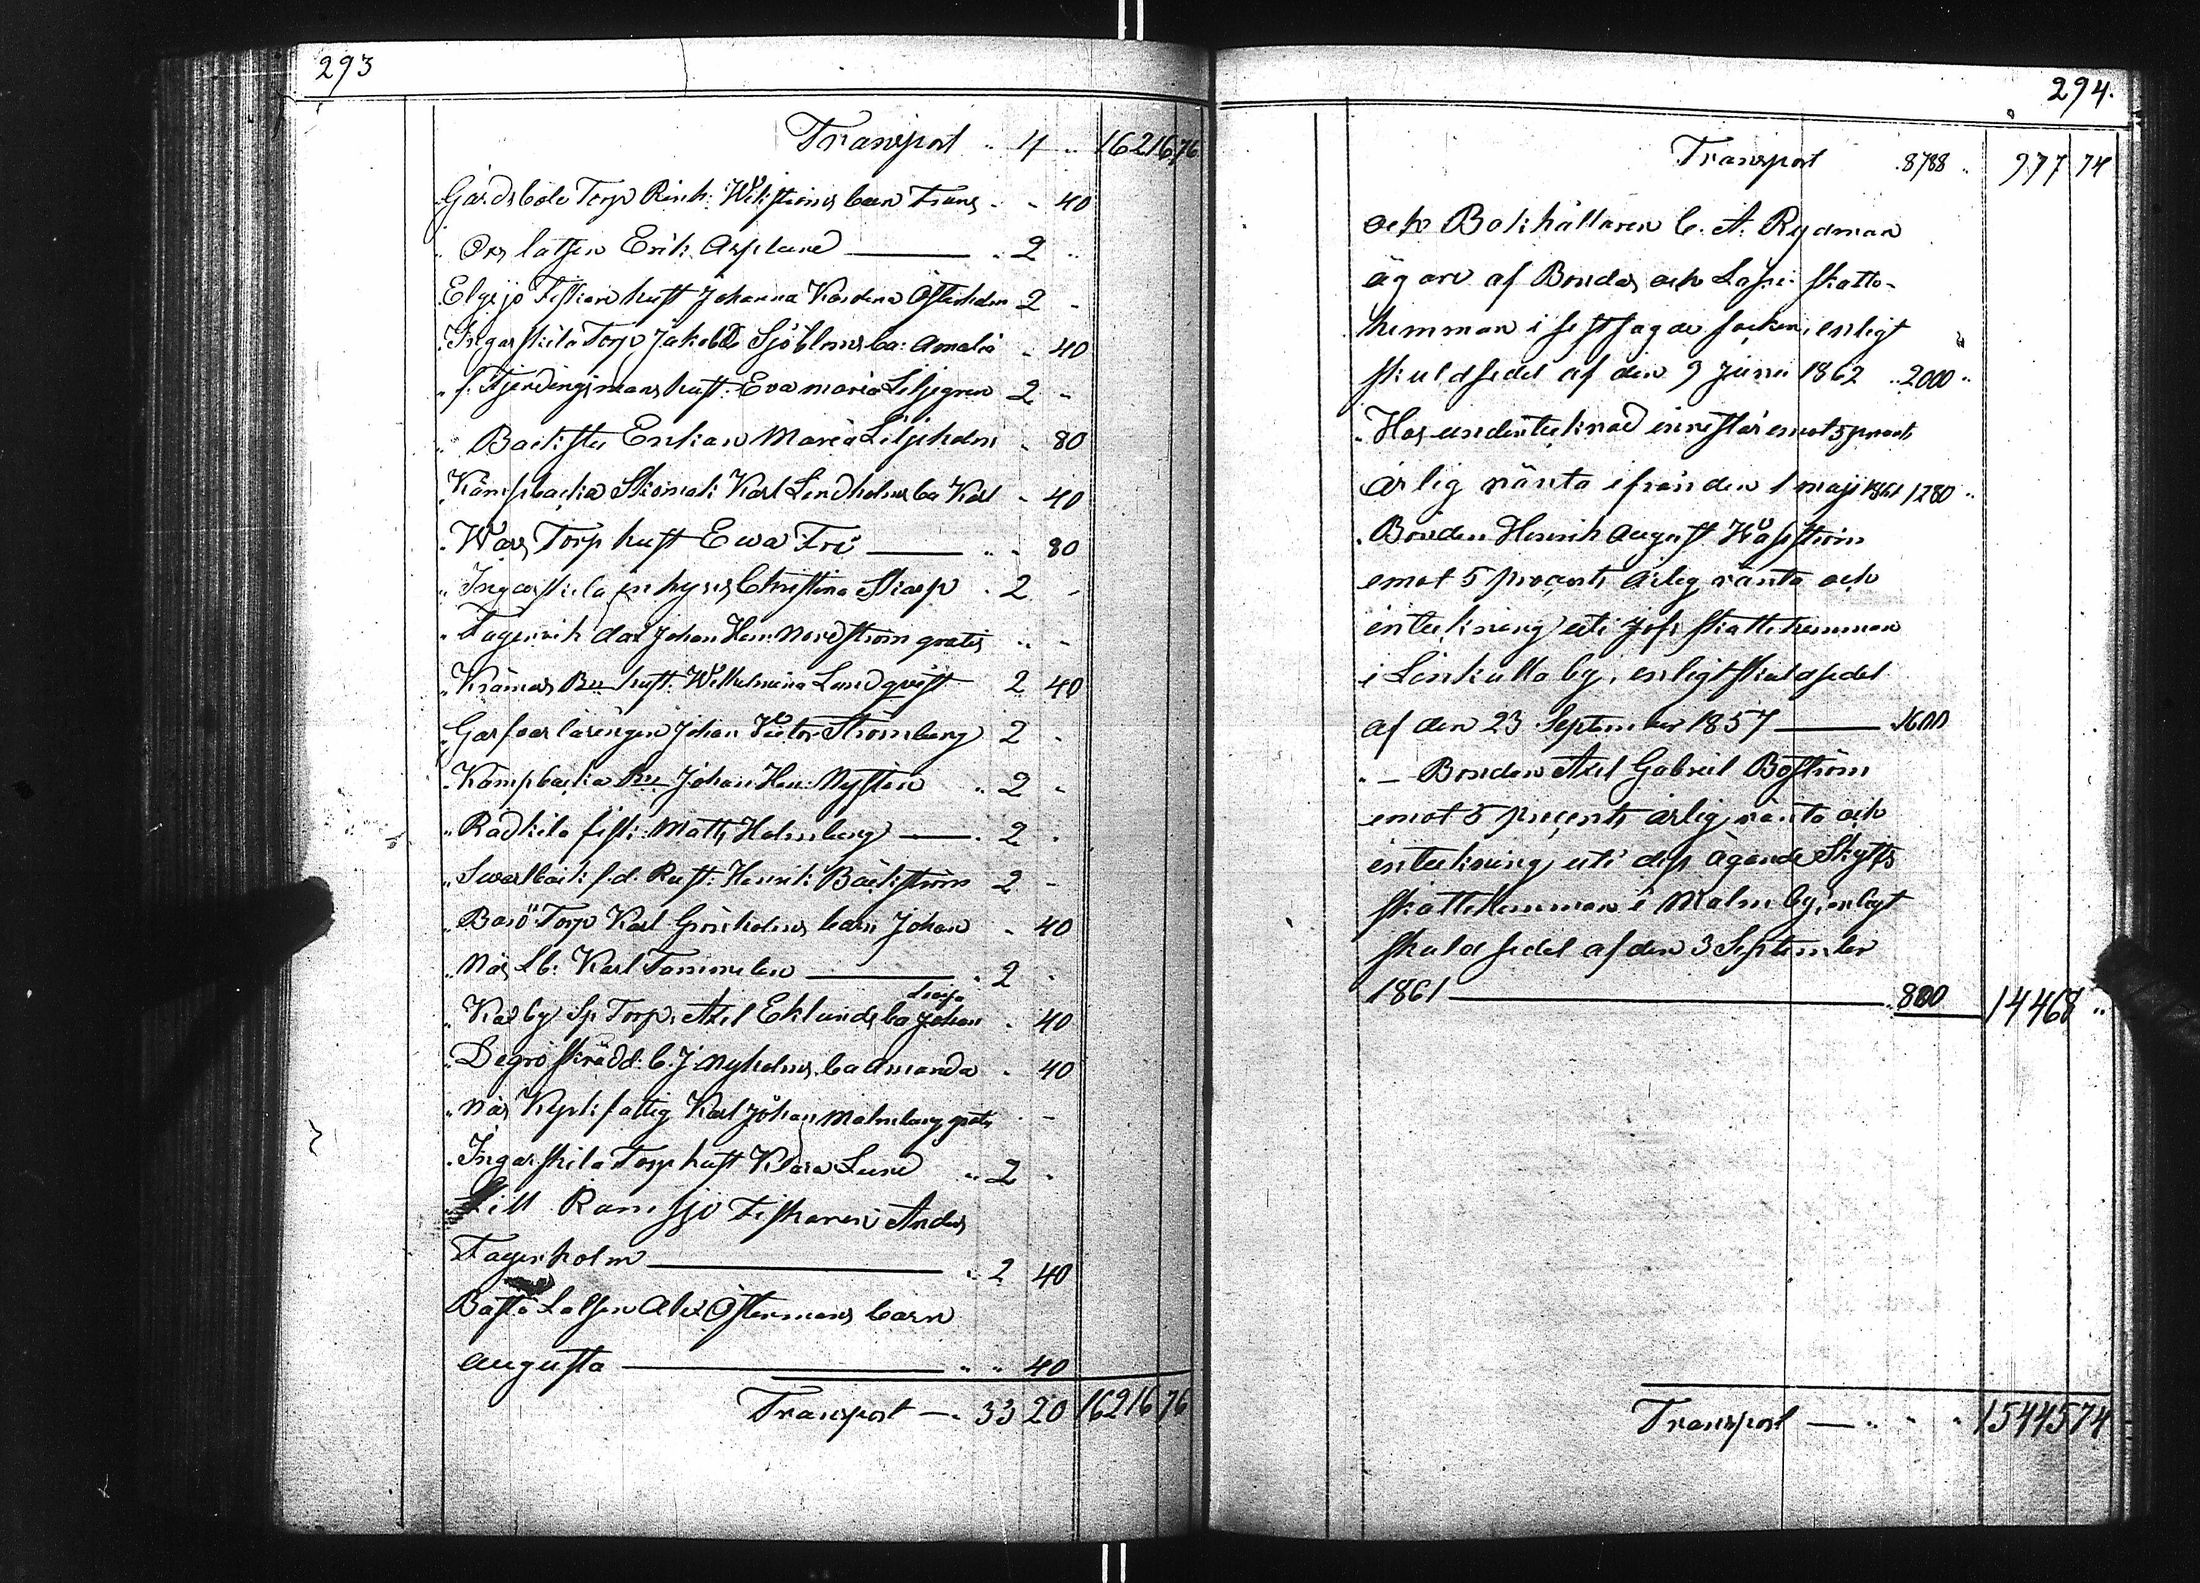 293
Transport " 4 " 16216 76
Gårdsböle Torp Rink: Wikströms barn Frans - - 40
" Ors latsen Erik Asplund — " 2 "
Elgsjö Fiskare hust Johanna Karolina Österholm 2 -
Ingarskila Torp Jakob Sjöbloms ba: Amalia - 40
" f. Fjerdingsmans hust: Eva Maria Liljegren 2 -
" Backstu Enkan Maria Liljeholm - 80
Kämpbacka Skomak: Karl Lindholms ba Karl - 40
" Wars Torp hust Ewa Fri — " - 80
" Ingarskila inhyses Christina Skarp - 2 -
" Fagervik Johan Hen: Nordström gratis " -
" Krämars hust: Wilhelmina Lundqvist 2 40
" Garfvar lärlingen Johan Victor Strömberg 2 -
" Kämpbacka Johan Hen: Nysten " 2 -
" Rådkila fisk: Matts Holmberg — " 2 -
" Svartback f.d. Rust: Henrik Bäckström 2 -
" Barö Torp Karl Grönholms barn Johan - 40
" Näs Karl Tammelin — " 2 -
" Karby Sp Torp: Axel Eklunds ba Johan - 40
" Degerö Skrädd: C. J. Nyholms ba Amanda - 40
" Näs fattig Karl Johan Malmberg gratis -
" Ingarskila Torp hust Klara Lund " 2 -
Lill Ramsjö Fiskaren Anders
Fagerholm — " 2 40
Båstö Lotsen Alex Östermans barn
Augusta — " " 40
Transport — " 33 20 16216 76
294.
Transport 8788 " 977 74
och Bokhållaren C. A. Rydman
ägare af Bondas och Lassi skatte-
hemman i sistsagde socken, enligt
skuldsedel af den 9 Junii 1862 " 2000 "
" Hos undertecknad innestår emot 5 procents
årlig ränta ifrån den 1 maji 1861 1280 "
" Bonden Henrik August Wasström
emot 5 procents årlig ränta och
inteckning uti Jofs skattehemman
i Linkulla by, enligt skuldsedel
af den 23 September 1857 — 1600
" — Bonden Axel Gabriel Boström
emot 5 procents årlig ränta och
inteckning uti dess ägande Skytts
skattehemman i Malm by, enligt
skuldsedel af den 3 September
1861 — 800 14468 "
Transport — " " " 15445 74